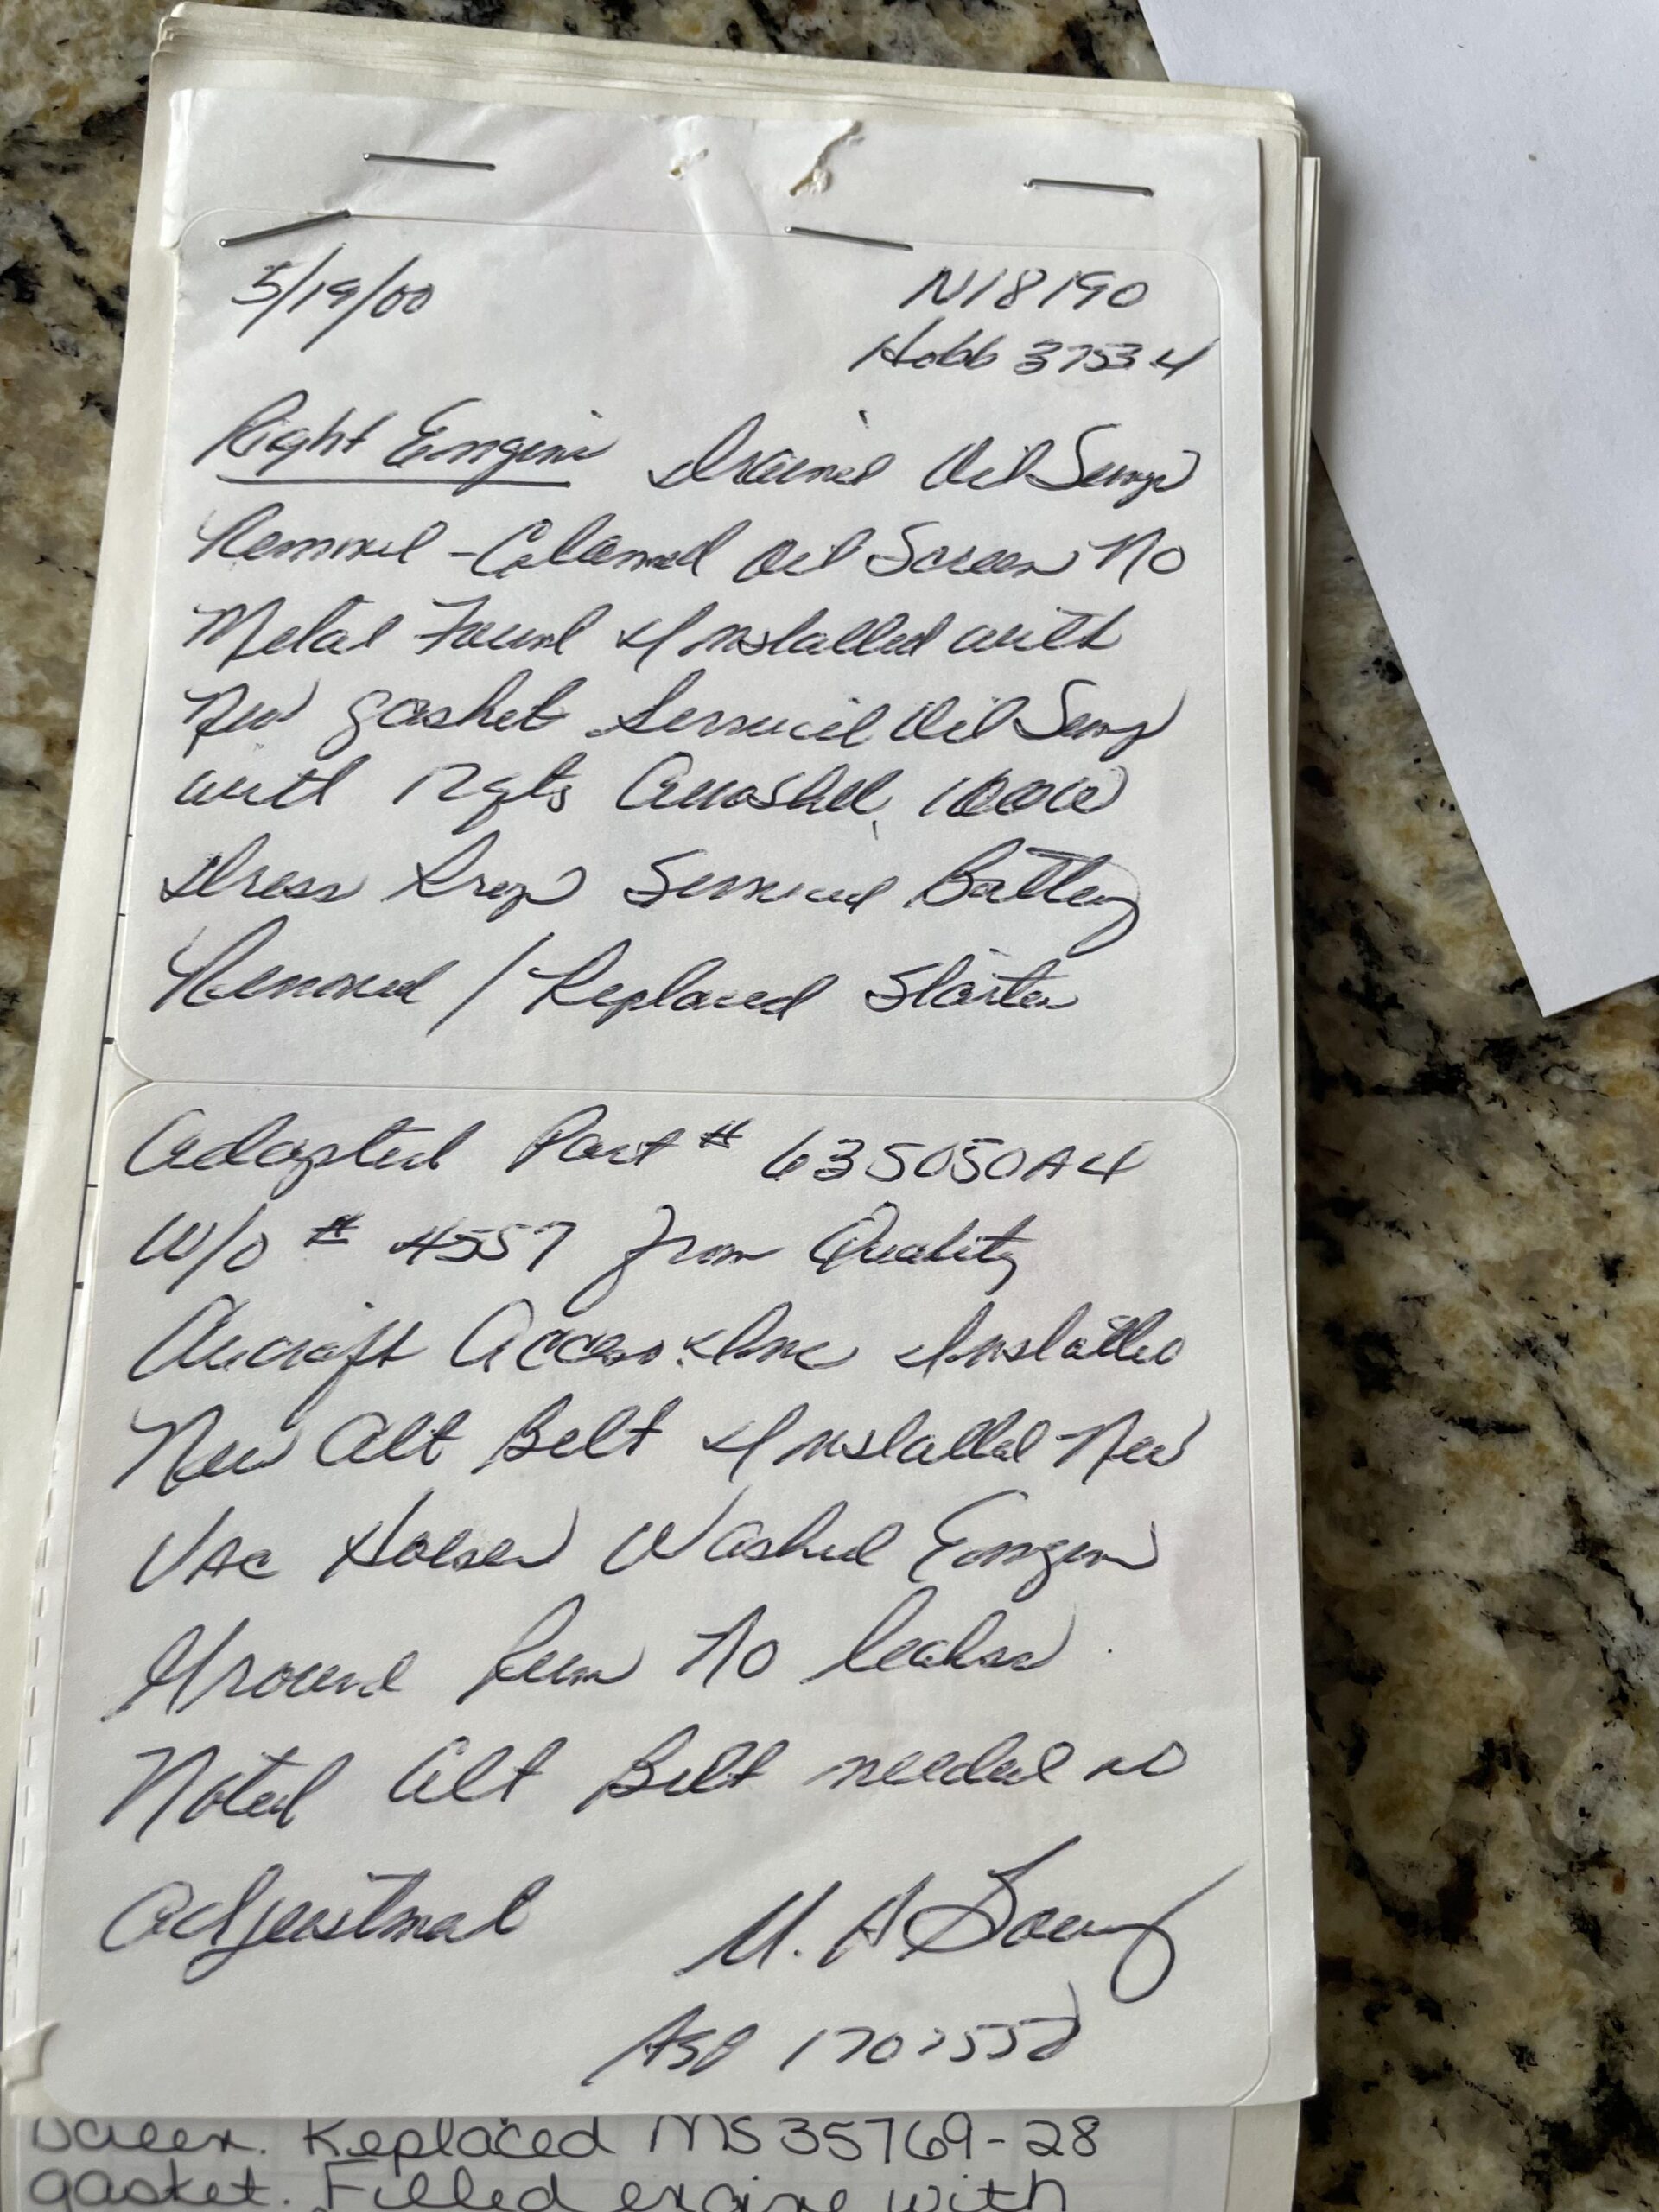 5/19/00 N18190
Hobb 3753.4
Right Engine Drained Oil Sump
Removed - Cleaned Oil Screen No
Metal Found Installed with
New gasket Serviced Oil Sump
with 12 qts Aeroshell 100W
Dress Prop Serviced Battery
Removed / Replaced Starter
Adapted Part # 635050A4
W/O # 4557 from Quality
Aircraft Access. Inc Installed
New Alt Belt Installed New
Vac Hoses Washed Engine
Ground Run No leaks
Noted Alt Belt needed no
Adjustment
A&P
Screen. Replaced MS35769-28
gasket. Filled engine with